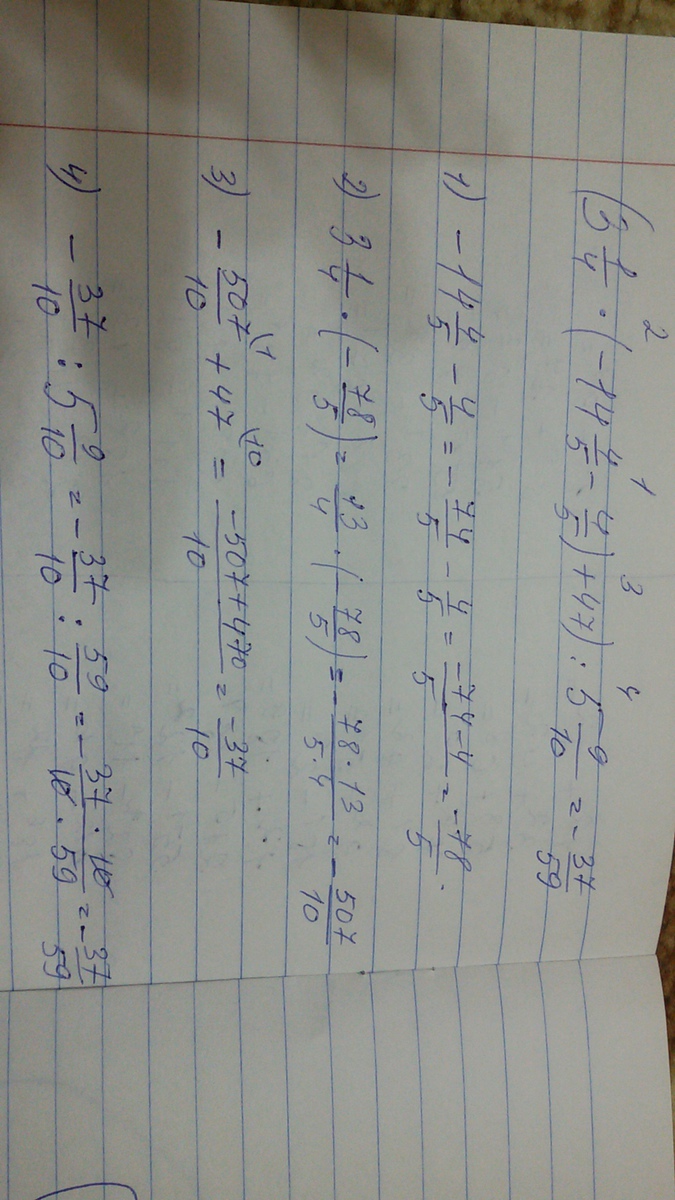 2 1 3 4
(3 1/4 · (-14 4/5 - 4/5) + 47) : 5 9/10 = - 37/59
1) - 14 4/5 - 4/5 = - 74/5 - 4/5 = -74-4/5 = -78/5.
2) 3 1/4 · (- 78/5) = 13/4 · (- 78/5) = - 78·13/5·4 = - 507/10
3) - 507/10 (1 + 47 (10 = -507+470/10 = -37/10
4) - 37/10 : 5 9/10 = - 37/10 : 59/10 = - 37·10/10·59 = - 37/59